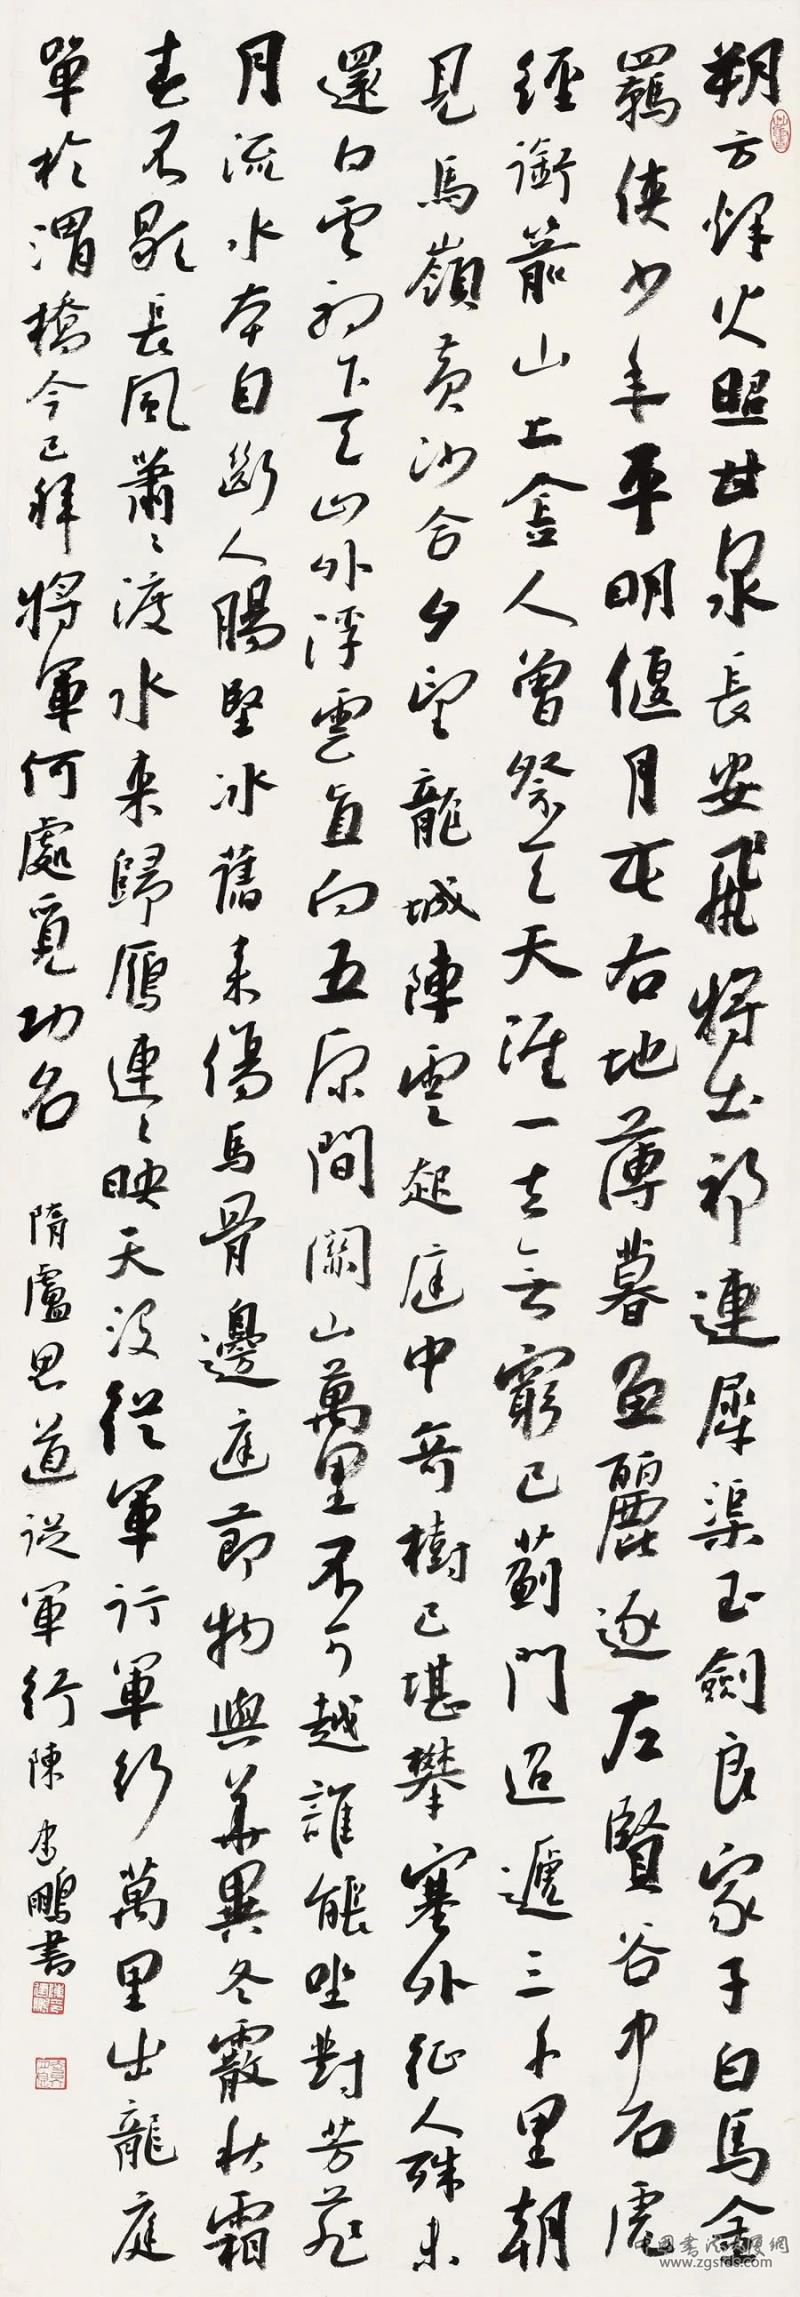 朔方烽火照甘泉長安飛將出祁連犀渠玉劍良家子白馬金
羈俠少年平明偃月屯右地薄暮魚麗逐左賢谷中石虎
經銜箭山上金人曾祭天天涯一去無窮已薊門迢遞三千里朝
見馬嶺黃沙合夕望龍城陣雲起庭中奇樹已堪攀塞外征人殊未
還白雲初下天山外浮雲直向五原間關山萬里不可越誰能坐對芳菲
月流水本自斷人腸堅冰舊來傷馬骨邊庭節物與華異冬霰秋霜
春不歇長風蕭〻渡水來歸雁連〻映天沒從軍行軍行萬里出龍庭
單於渭橋今已拜將軍何處覓功名
隋盧思道從軍行陳 鵬書
中國書法大厦網
www.zgsfds.com